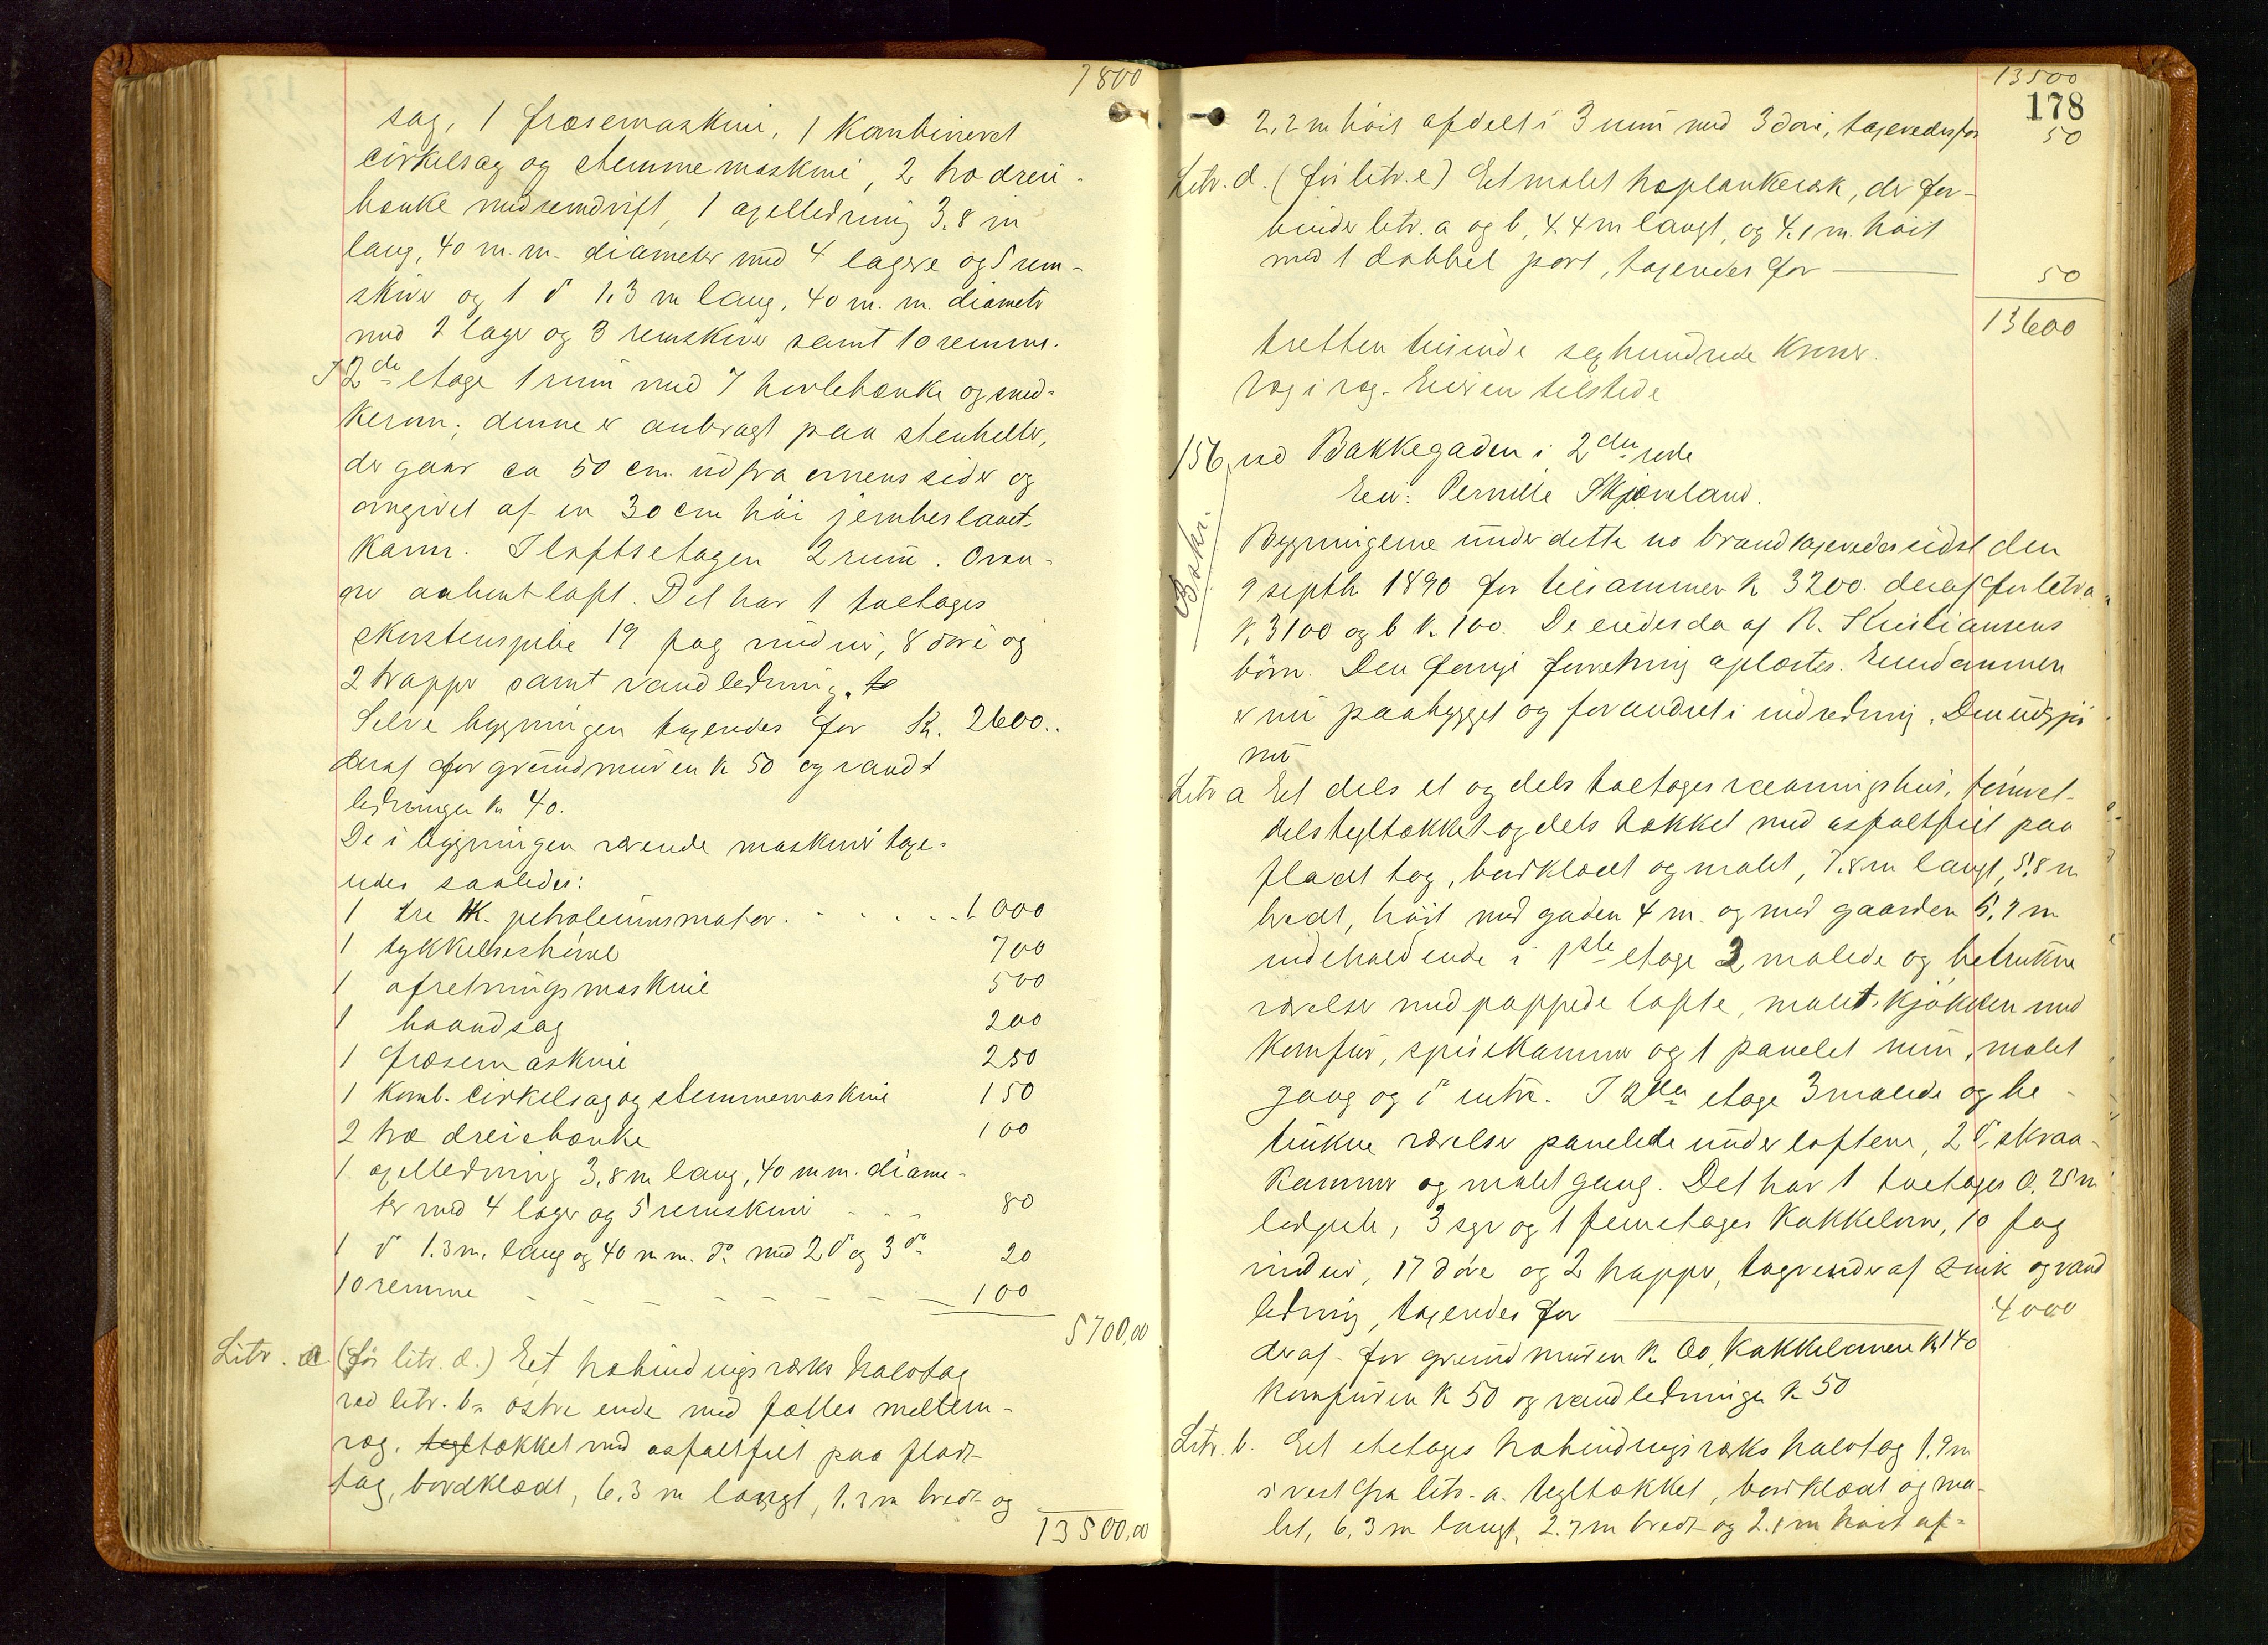 7800
sag, 1 fræsemaskine, 1 kombineret
cirkelsag og stemmemaskine, 2 træ dreie-
bænke med remdrift, 1 axelledning 3.8 m
lang, 40 m.m. diameter med 4 lagere og 5 rem-
skiver og 1 do 1.3 m lang, 40 m.m. diameter
med 2 lager og 3 remskiver samt 10 remme.
I 2den etage 1 rum med 7 høvlebænke og sned-
kerovn; denne er anbragt paa stenheller,
der gaar ca 50 cm. ud fra ovnens sider og
omgivet af en 30 cm høi jernbeslaaet
karm. I loftsetagen 2 rum. Oven-
over aabent loft. Det har 1 toetages
skorstenspibe 19 fag vinduer, 8 døre og
2 trapper samt vandledning.
Selve bygningen taxeredes for K. 2600..
deraf for grundmuren K 50 og vand-
ledningen K 40.
De i bygningen værende maskiner taxe-
redes saaledes:
1 tre HK. petroleumsmotor . . . . . 1000
1 tykkelseshøvel 700
1 afretningsmaskine 500
1 baandsag 200
1 fræsemaskine 250
1 komb. cirkelsag og stemmemaskine 150
2 træ dreiebænke 100
1 axelledning 3,8 m lang, 40 mm. diame-
ter med 4 lager og 5 remskiver - - - 80
1 do 1.3 m. lang og 40 mm. do med 2 do og 3 do 20
10 remme - - - - - - - - 100
5700,00
Litr. c (før litr. d.) Et træbindingsværks halvtag
ved litr. b's østre ende med fælles mellem-
væg, tegltækket med asfaltfilt paa fladt
tag, bordklædt, 6.3 m langt, 1.2 m bredt og
13500,00
13500
178
2.2 m høit afdelt i 3 rum med 3 døre, taxeredes for 50
Litr. d. (før litr. e) Et malet træplankeværk, der for-
binder litr. a og b, 4.4 m langt, og 4.1 m. høit
med 1 dobbel port, taxeredes for 50
13600
tretten tusinde sexhundrede kroner.
væg i væg. Eieren tilstede
156, ved Bakkegaden i 2den rode
Eier: Pernille Skjæveland.
Beskr.
Bygningerne under dette no brandtaxeredes sidst den
9 septbr 1890 for tilsammen K 3200. deraf for litr a
K. 3100 og b K. 100. De eiedes da af N. Kristiansens
børn. Den forrige forretning oplæstes. Eiendommen
er nu paabygget og forandret i indredning. Den udgjør
nu
Litr a Et dels et og dels toetages vaaningshus, tømret
dels tegltækket og dels tækket med asfaltfilt paa
fladt tag, bordklædt og malet, 7.8 m langt, 5.8 m
bredt, høit mod gaden 4 m. og mod gaarden 5.7 m
indeholdende i 1ste etage 2 malede og betrukne
værelser med pappede lofte, malet kjøkken med
komfur, spisekammer og 1 panelet rum, malet
gang og do entre. I 2den etage 3 malede og be-
trukne værelser panelede under loftene, 2 do skraa-
kammer og malet gang. Det har 1 toetages 0.25 m
ledpibe, 3 syv og 1 femetages kakkelovn, 10 fag
vinduer, 17 døre og 2 trapper, tagrender af zink og vand
ledning, taxeredes for 4000
deraf for grundmuren K 80, kakkelovnene K. 140
komfuren K 50 og vandledningen K 50
Litr. b. Et etetages træbindingsværks halvtag 1.9 m
i vest fra litr. a. tegltækket, bordklædt og ma-
let, 6,3 m langt, 2.7 m bredt og 2.1 m høit af-